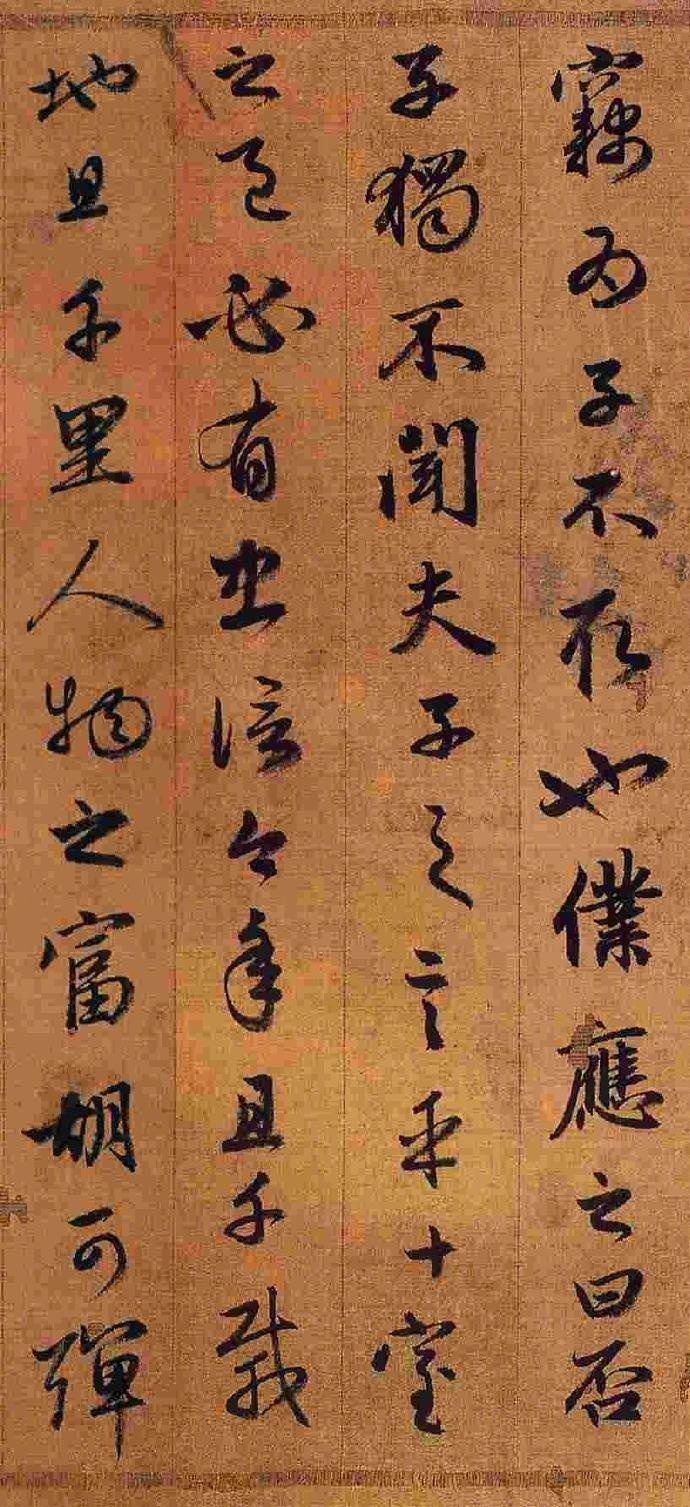 竊為子不取也僕應之曰否
子獨不聞夫子之言乎十室
之邑必有忠信今年且千載
地且千里人物之富胡可殫